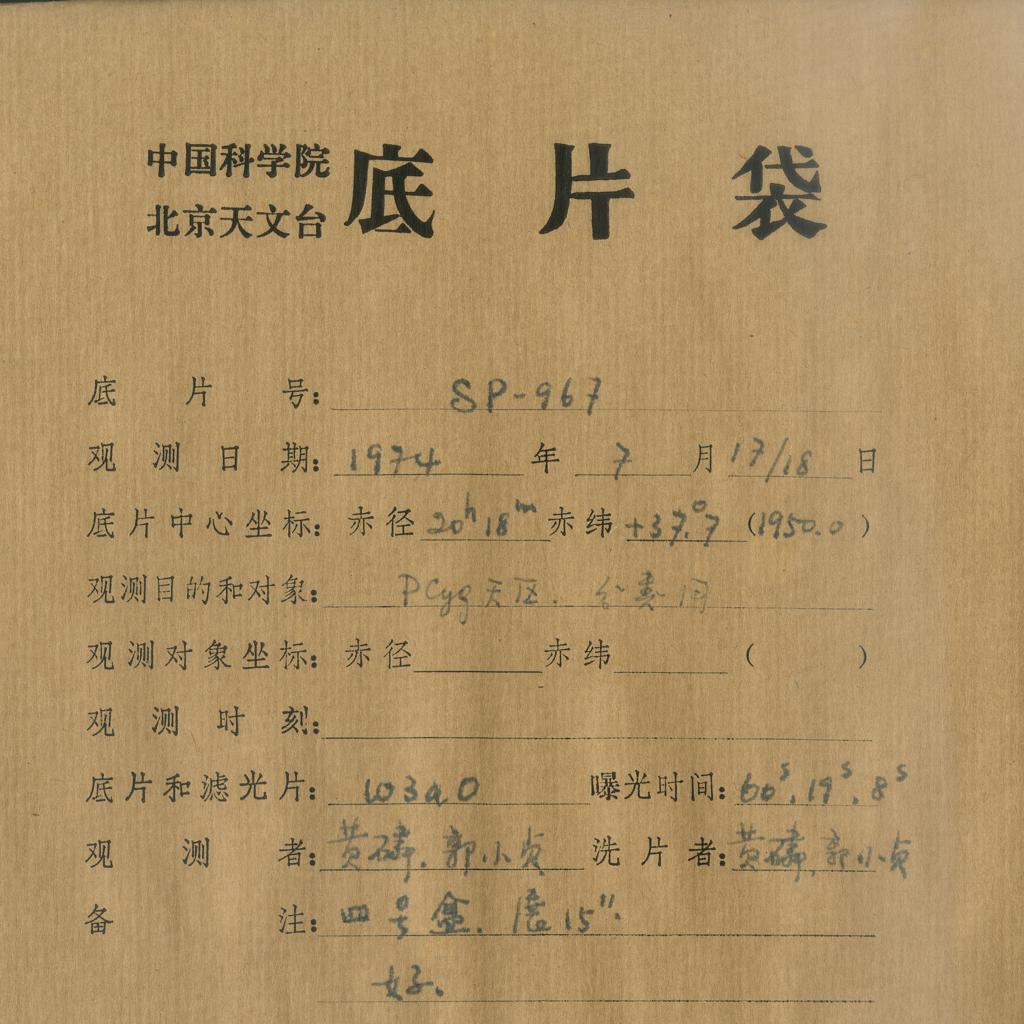 中国科学院
北京天文台
底片袋
底片号： SP-967
观测日期： 1974 年 7 月 17/18 日
底片中心坐标： 赤径 20ʰ18ᵐ 赤纬 +37.°7 (1950.0)
观测目的和对象： P Cyg 天区.
观测对象坐标： 赤径 赤纬 ( )
观测时刻：
底片和滤光片： 103aO 曝光时间： 60ˢ, 19ˢ, 8ˢ
观测者： 黄磷, 郭小贞 洗片者： 黄磷, 郭小贞
备注： 四号盒. 15".
好.